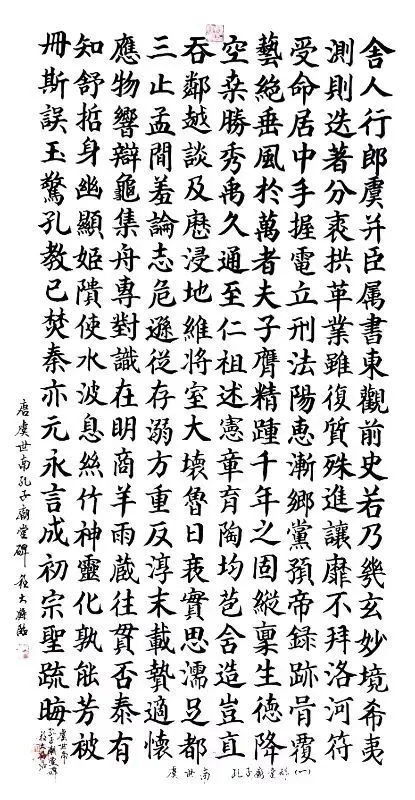 舍人行郎虞并臣属書東觀前史若乃幾玄妙境希夷
測則迭著分袠拱革業雖復質殊進讓靡不拜洛河符
受命居中手握電立刑法陽惠漸鄉黨預帝録跡骨覆
藝絶垂風於萬者夫子膺精踵千年之固縱稟生德降
空桒勝秀禹久通至仁祖述憲章育陶均苞含造豈直
吞鄰越談及歷浸地維將室大壊魯日喪實思濡足都
三止孟間羞論志危遜從存溺方重反淳末載贄適懷
應物響辯龜集舟專對識在明商羊雨蔵往貫否泰有
知舒哲身幽顯姬隤使水波息絲竹神靈化孰能芳被
冊斯誤玉驚孔教已焚秦亦元永言成初宗聖疏晦
唐虞世南孔子廟堂碑
虞世南 孔子廟堂碑(一)